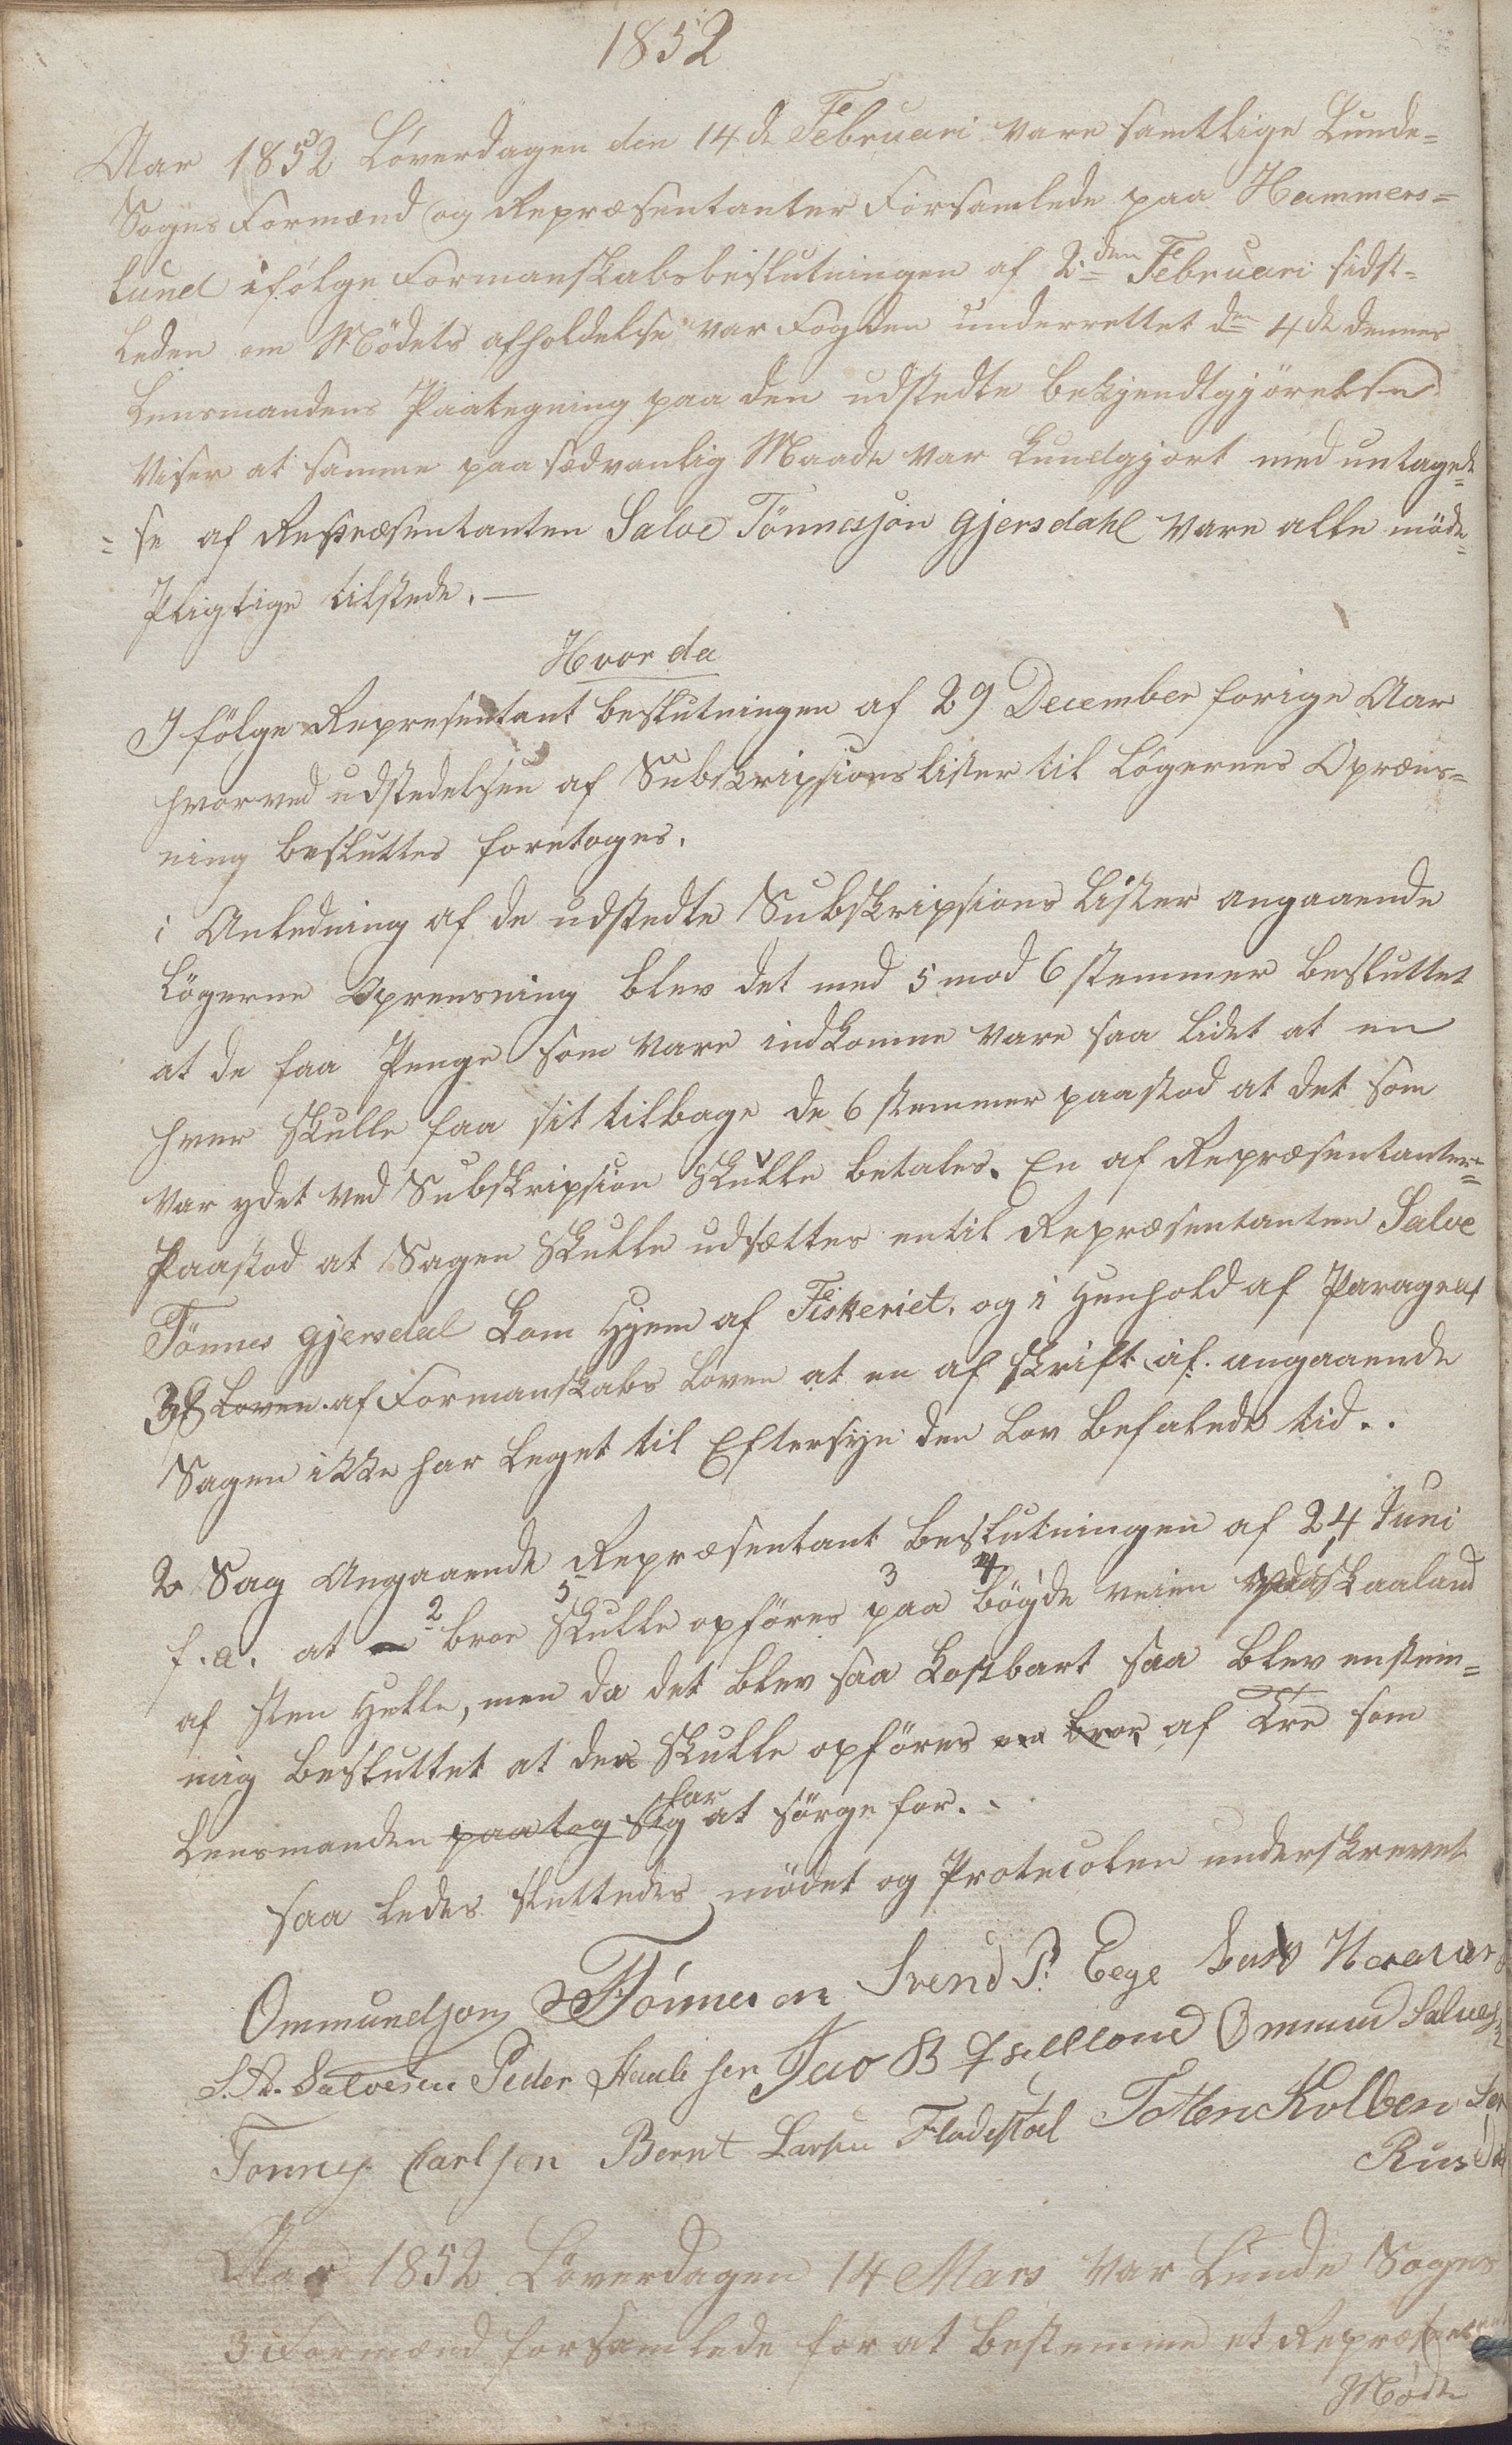 1852
Aar 1852 Löverdagen den 14d Februari vare samtlige Lunde-
Sogns Formænd og Repræsentanter Forsamlede paa Hammers-
lund ifölge Formanskabsbeslutningen af 2den Februari sidst-
leden om Mödets afholdelse var Fogden underrettet den 4d dennes
Lensmandens Paategning paa den udstedte bekjendtgjörelse
viser at samme paa sædvanlig Maade var kundgjort med untagel-
-se af Repræsentanten Salve Tönnesjon Gjersdahl vare alle möde-
Pligtige tilstede. —
Hvor da
I fölge Representant beslutningen af 29 December forige Aar
hvorved udstedelsen af Subskripsionslister til Lögernes Oprens-
ning besluttes foretoges.
i Anledning af de udstedte Subskripsions Lister angaaende
Lögerne Oprensning blev det med 5 mod 6 stemmer besluttet
at de faa Penge som vare indkomne vare saa lidet at en
hver skulle faa sit tilbage de 6 stemmer paastod at det som
var ydet ved Subskripsion skulle betales. En af Repræsentanter-
Paastod at Sagen skulle udsættes entil Repræsentanten Salve
Tönnes Gjersdal kom Hjem af Fiskeriet. og i Henhold af Paragraf
38 Loven. af Formanskabs Loven at en af skrift af. angaaende
Sagen ikke har leget til Eftersyn den Lov befalede tid..
2 Sag Angaaende Repræsentant beslutningen af 24 Juni
f. a. at 2 broe 5 skulle opföres 3 paa 4 bögde veien Skaaland
af sten Helle, men da det blev saa kostbart saa blev enstem-
mig besluttet at der skulle opföres en broe af Tre som
Lensmanden paatog sig har at sörge for..
saa ledes sluttedes mödet og Protecolen underskrevet
Ommundson Tönneson Svend P. Eege Lars
S. A. Salvesen Peder Jac B Omund Salves-
Tonnes Carlsen Bernt Larsen Fladstöl Kolbens
Rus
Aar 1852 Löverdagen 14 Mars var Lunde Sogns
3 Formænd forsamlede for at bestemme et Repræsentant
Möde